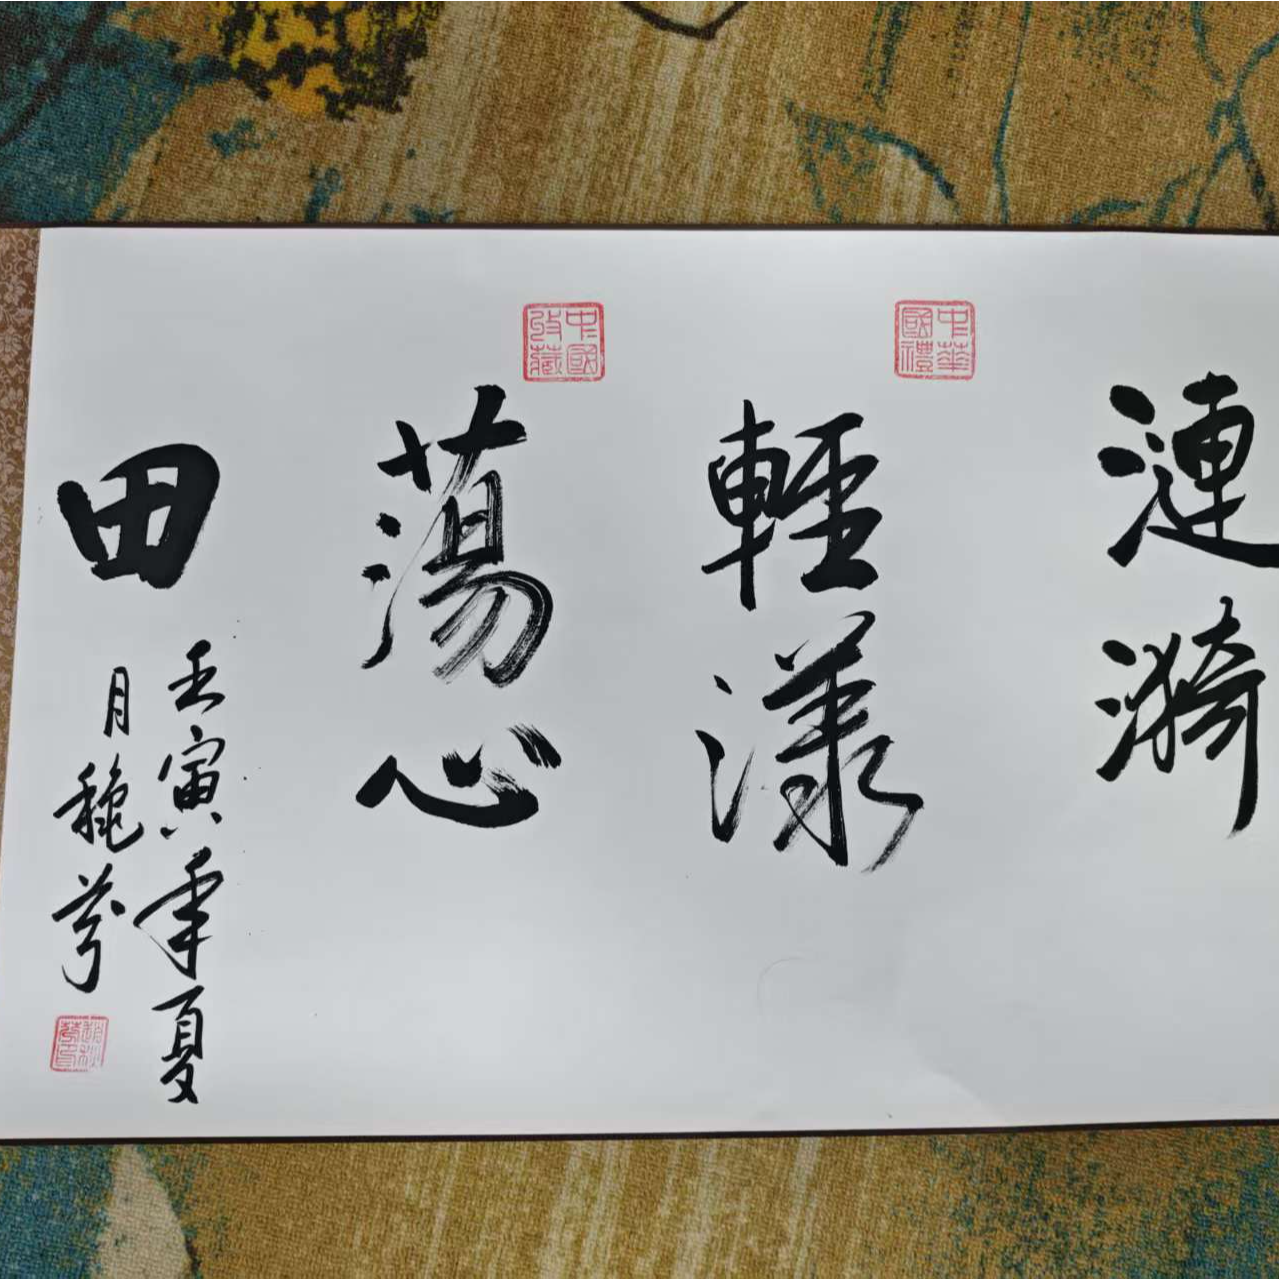 漣漪
輕漾
蕩心
田
壬寅年夏
月穐芳
中華國禮
中國收藏